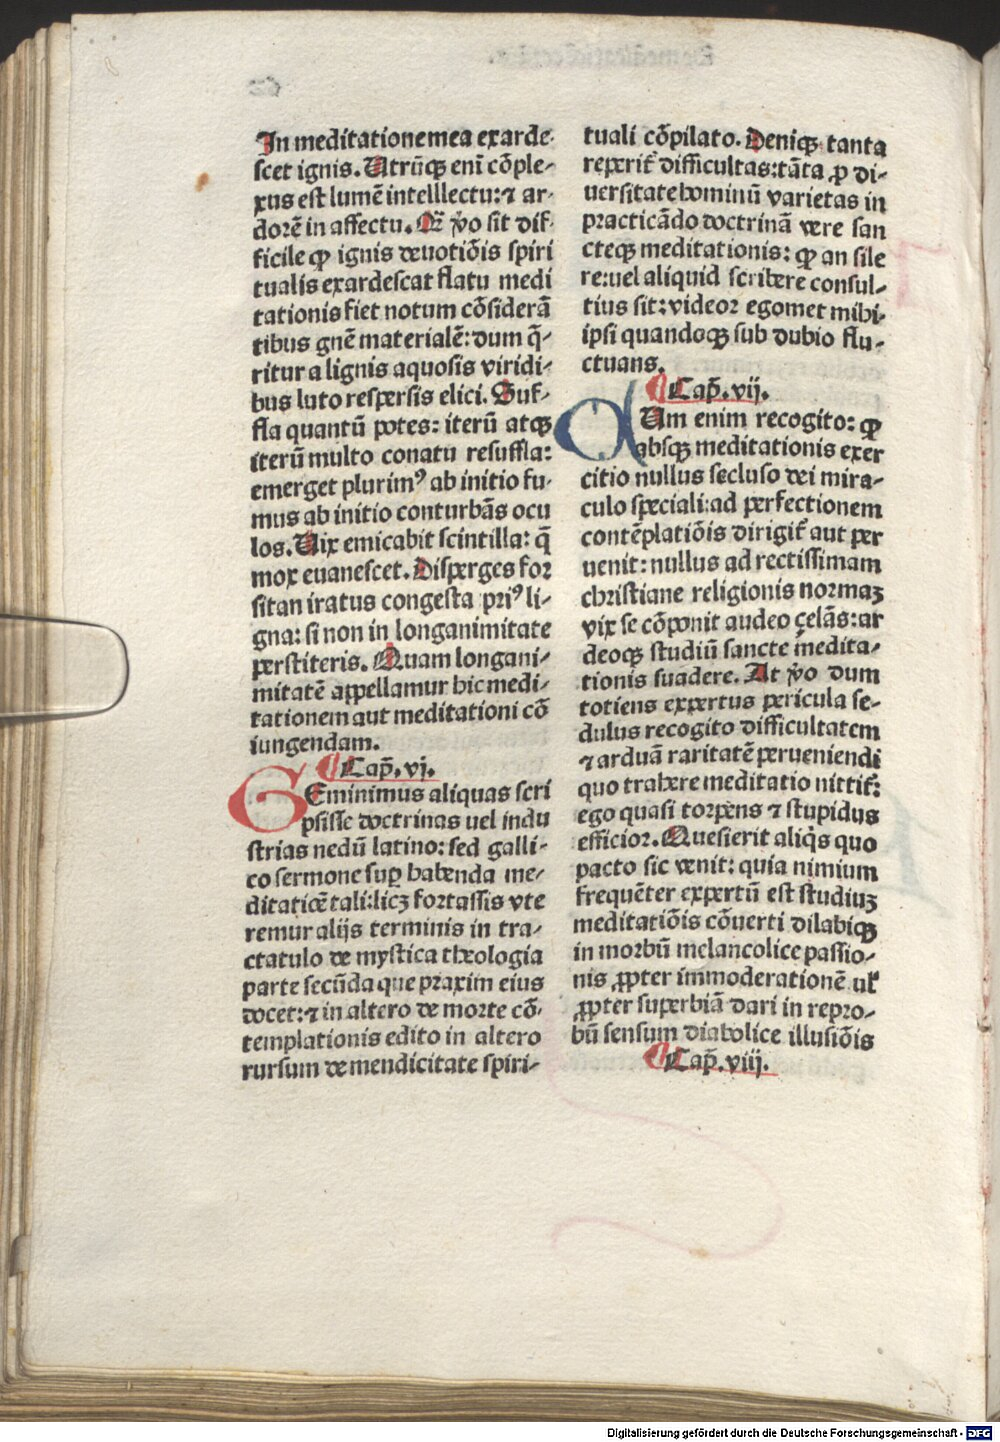 In meditatione mea exarde-
scet ignis. Utrūqꝫ enī cōple-
xus est lumē intelllectu: ⁊ ar-
dorē in affectu. Qr̄ ṽo sit dif-
ficile ꝙ ignis deuotiōis spiri
tualis exardescat flatu medi
tationis fiet notum cōsiderā
tibus gnē materialē: dum q̄-
ritur a lignis aquosis viridi-
bus luto respersis elici. Suf-
fla quantū potes: iterū atqꝫ
iterū multo conatu resuffla:
emerget plurimꝰ ab initio fu-
mus ab initio conturbās ocu
los. Uix emicabit scintilla: q̄
mox euanescet. Disperges for
sitan iratus congesta priꝰ li-
gna: si non in longanimitate
perstiteris. Quam longani-
mitatē appellamur hic medi-
tationem aut meditationi cō
iungendam.
¶ Cap̄. vj.
GEminimus aliquas scri
psisse doctrinas uel indu
strias nedū latino: sed galli-
co sermone suꝑ habenda me-
ditatiōe tali: licꝫ fortassis vte
remur alijs terminis in tra-
ctatulo de mystica theologia
parte secūda que praxim eius
docet: ⁊ in altero de morte cō-
templationis edito in altero
rursum de mendicitate spiri-
tuali cōpilato. Deniqꝫ tanta
reperit̄ difficultas: tāta ꝓ di-
uersitate hominū varietas in
practicādo doctrinā vere san
cteqꝫ meditationis: ꝙ an sile
re: uel aliquid scribere consul-
tius sit: videor egomet mihi-
ipsi quandoqꝫ sub dubio flu-
ctuans.
¶ Cap̄. vij.
dUm enim recogito: ꝙ
absqꝫ meditationis exer
citio nullus secluso dei mira-
culo speciali: ad perfectionem
contēplatiōis dirigit̄ aut per
uenit: nullus ad rectissimam
christiane religionis normaꝫ
vix se cōponit audeo çelās: ar
deoqꝫ studiū sancte medita-
tionis suadere. At ṽo dum
totiens expertus pericula se-
dulus recogito difficultatem
⁊ arduā raritatē perueniendi
quo trahere meditatio nittit̄:
ego quasi torpens ⁊ stupidus
efficior. Quesierit aliq̇s quo
pacto sic venit: quia nimium
frequēter expertū est studiuꝫ
meditatiōis cōuerti dilabiqꝫ
in morbū melancolice passio-
nis ꝓpter immoderationē uł
ꝓpter superbiā dari in repro-
bū sensum diabolice illusiōis
¶ Cap̄. viij.
Digitalisierung gefördert durch die Deutsche Forschungsgemeinschaft - DFG